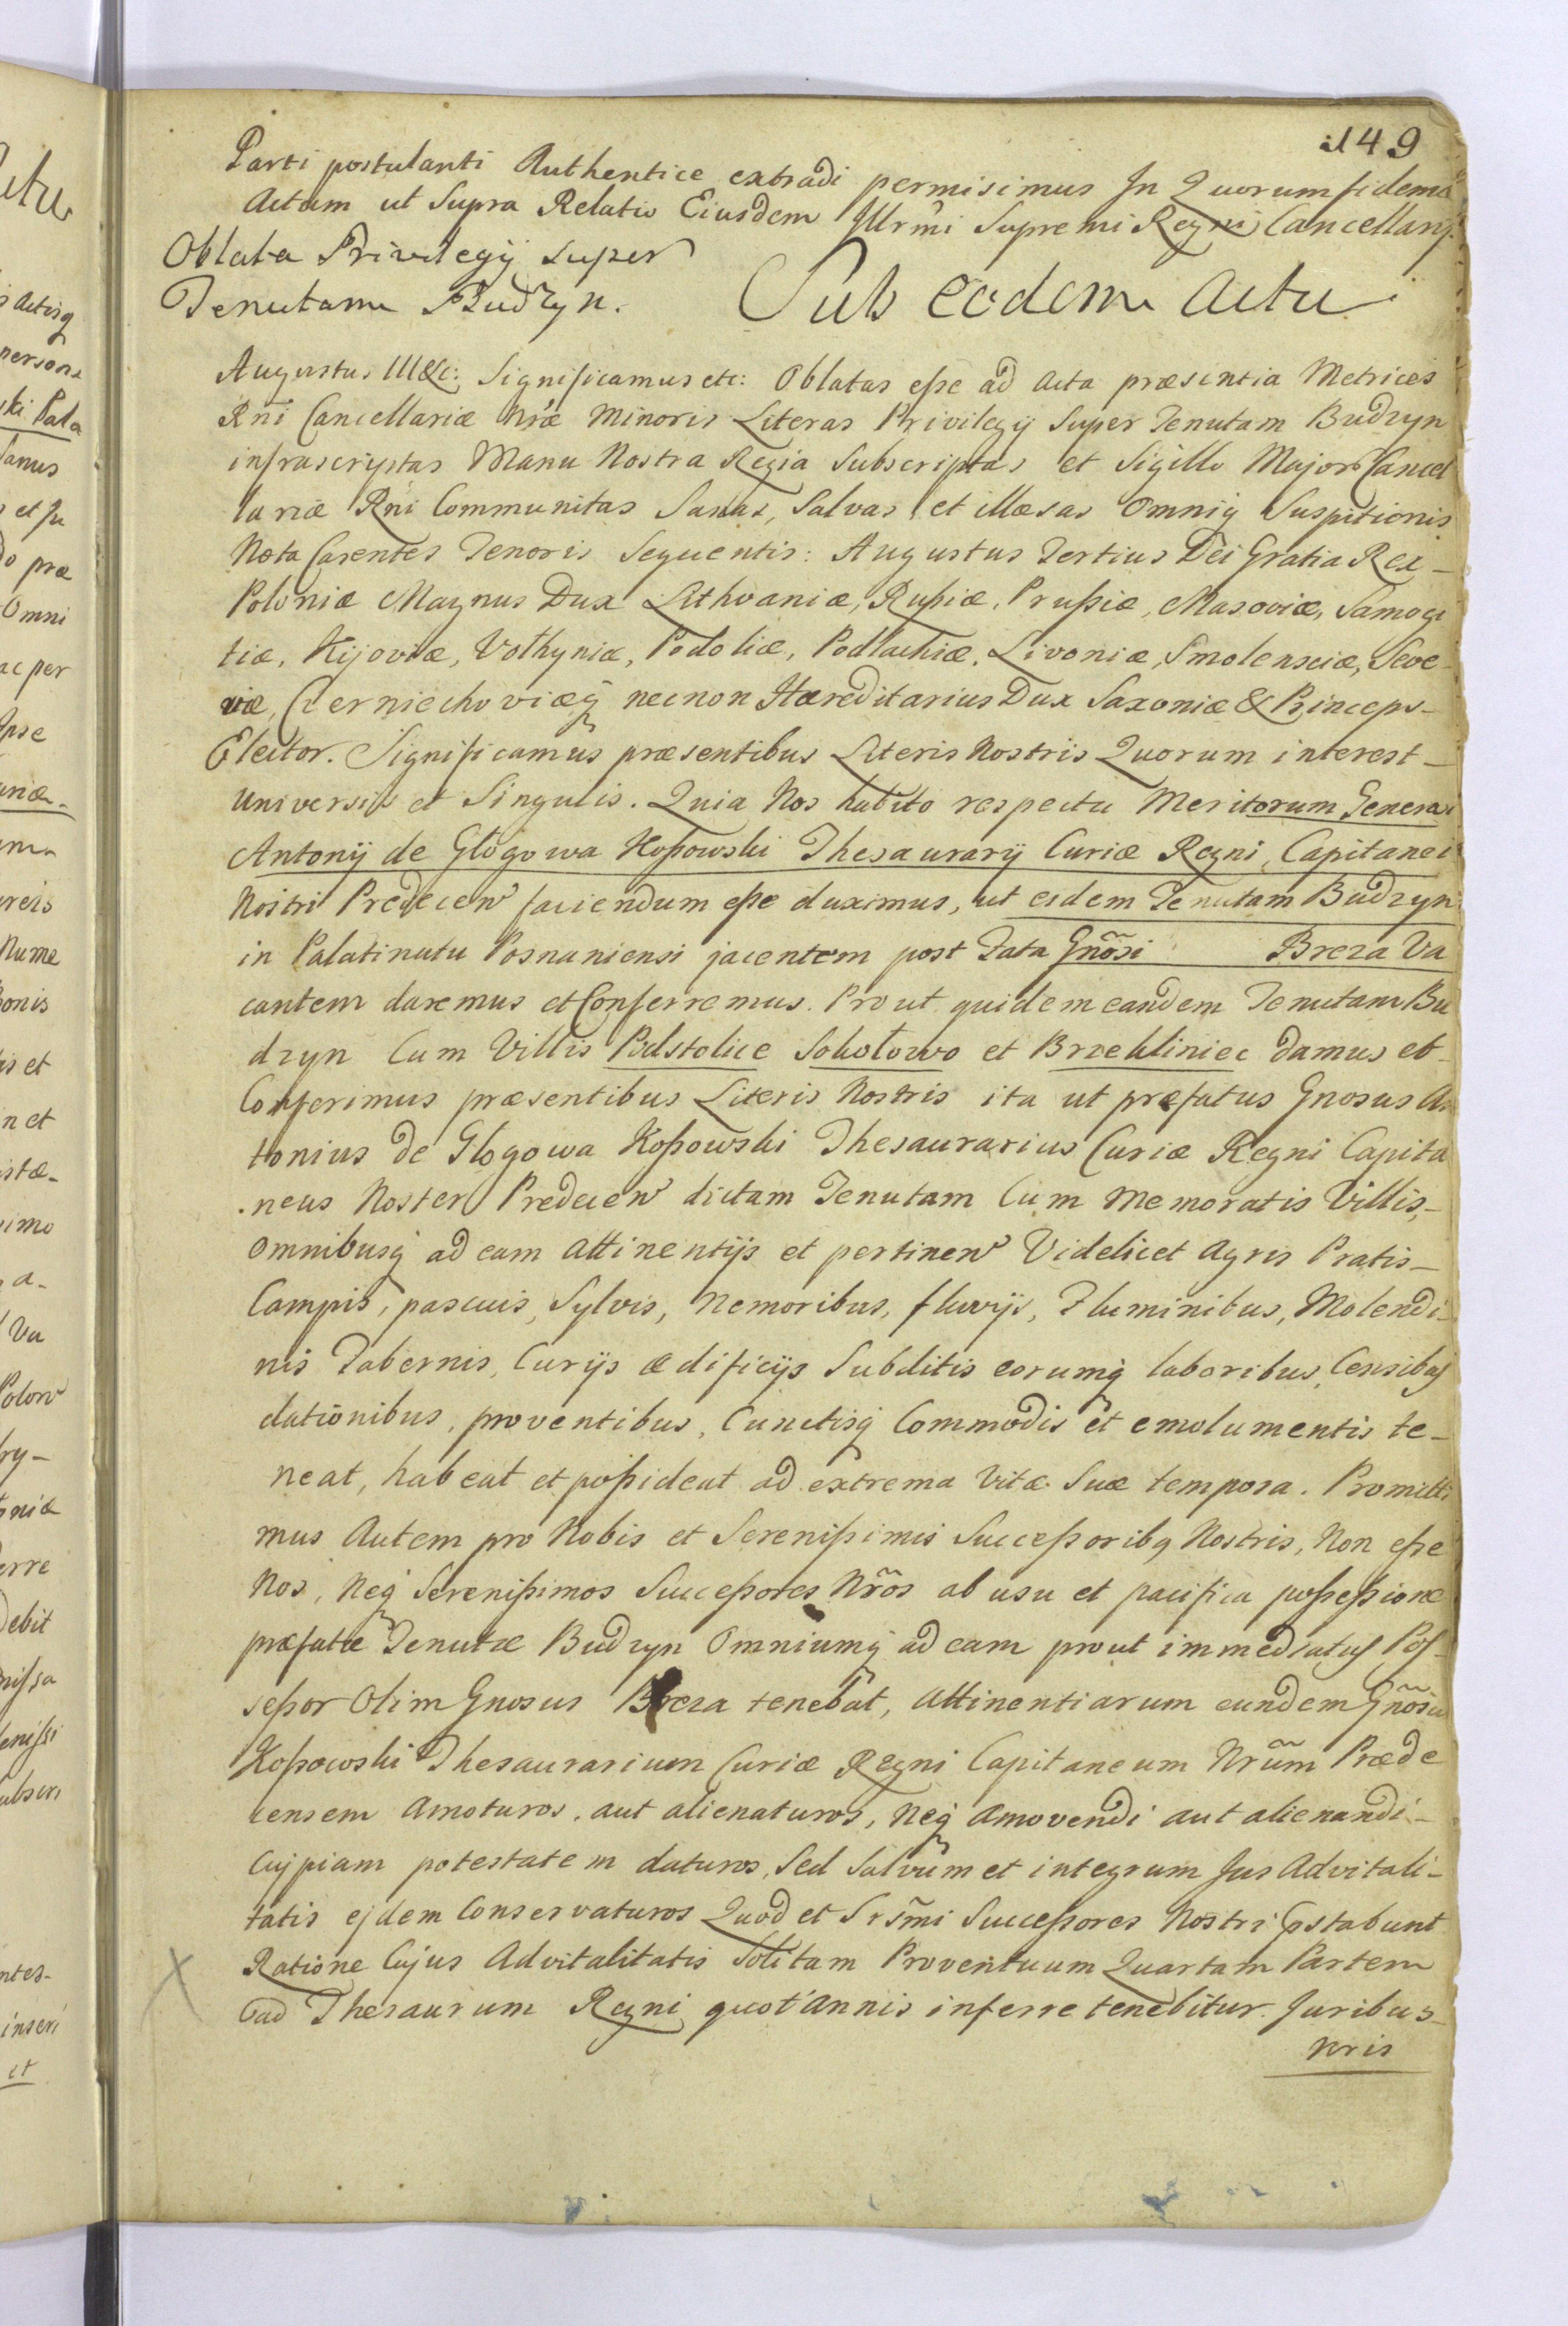 149
Parti postulanti Authentice extradi permisimus In Quorum fidem
Actum ut Supra Relatio Eiusdem Illrm̃i Supremi Regni Cancellarÿ
Oblata Privilegÿ super
Tenutam Budzyn.
Sub eodem Actu
Augustus III &c: Significamus etc: Oblatas eße ad Acta præsentia Metrices
Rni Cancellariæ Nræ Minoris Literas Privilegÿ Super Tenutam Budzyn
infrascriptas Manu Nostra Regia Subscriptas et Sigillo Majori Cancel
lariæ Rni Communitas Sanas, Salvas et illæsas Omniq̃ Suspitionis
Nota Carentes Tenoris Sequentis: Augustus Tertius Dei Gratia Rex –
Poloniæ Magnus Dux Lithvaniæ, Rußiæ, Prußiæ, Masoviæ, Samogi
tiæ, Kijoviæ, Volhyniæ, Podoliæ, Podlachiæ, Livoniæ, Smolensciæ, Seve
riæ, Czerniechoviæq̃ necnon Hæreditarius Dux Saxoniæ & Princeps –
Elector. Significamus præsentibus Literis Nostris Quorum interest –
Universis et Singulis. Quia Nos habito respectu Meritorum Generosi
Antonÿ de Głogowa Koßowski Thesaurarÿ Curiæ Regni, Capitanei
Nostri Predecen͂ faciendum eße duximus, ut eidem Tenutam Budzyn
in Palatinatu Posnaniensi jacentem post Fata Gnõsi Breza Va
cantem daremus et Conferremus. Prout quidem eandem Tenutam Bu
dzyn Cum Villis Podstolice Sokołowo et Brzekliniec damus et –
Conferimus præsentibus Literis Nostris ita ut præfatus Gnosus An
tonius de Głogowa Koßowski Thesaurarius Curiæ Regni Capita
neus Noster Predecen͂ dictam Tenutam Cum Memoratis Villis, –
Omnibusq̃ ad eam attinentÿs et pertinen͂ Videlicet Agris Pratis –
Campis, pascuis, Sylvis, Nemoribus, fluvÿs, Fluminibus, Molendi
nis Tabernis, Curÿs ædificÿs Subditis eorumq̃ laboribus, Censibq
dationibus, proventibus, Cunctisq̃ Commodis et emolumentis te –
neat, habeat et poßideat ad extrema Vitæ Suæ tempora. Promitti
mus Autem pro Nobis et Serenißimis Succeßoribq Nostris, Non eße
Nos, Neq̃ Serenißimos Succeßores Nrõs ab usu et pacifica poßeßione
præfatæ Tenutæ Budzyn Omniumq̃ ad eam prout immediatus Pos
seßor Olim Gnosus Breza tenebat, attinentiarum eundem Gnõsum
Koßowski Thesaurarium Curiæ Regni Capitaneum Nrũm Præde
censem Amoturos, aut alienaturos, Neq̃ Amovendi aut alienandi –
Cujpiam potestatem daturos, Sed Salvum et integrum Jus Advitali –
tatis ejdem Conservaturos Quod et Srsm̃i Succeßores Nostri Pstabunt
Ratione Cujus Advitalitatis Solitam Proventuum Quartam Partem
ad Thesaurum Regni quot Annis inferre tenebitur. Juribus
nris